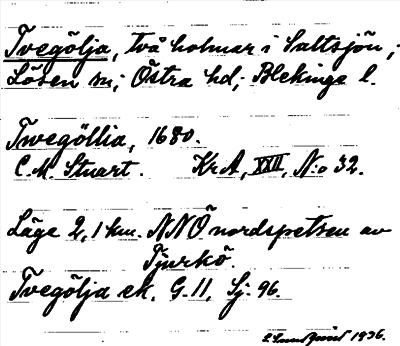 Tvegölja, två holmar i Saltsjön,
Lösen sn; Östra hd; Blekinge l.
Twegöllia, 1680.
C. M. Stuart. Kr A, XXII, N:o 32.
Läge 2,1 km. NNÖ nordspetsen av
Tjurkö.
Tvegölja ek. G. 11, Sj. 96.
1936.